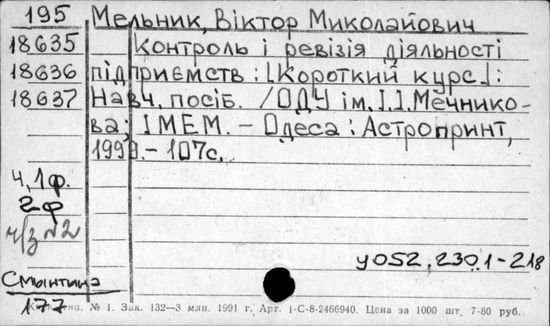 195 Мельник, Віктор Миколайович
18635 Контроль і ревізія діяльності
18636 підприємств : [Короткий курс] :
18637 Навч. посіб. / ОДУ ім. І.І. Мечнико-
ва; ІМЕМ. – Одеса : Астропринт,
1999. – 107с.
ч. 1ф.
2ф
ч/з №2
у052.230.1-218
Смынтина
177
№ 1. Зак. 132—3 млн. 1991 г. Арт. 1-С-8-2466940. Цена за 1000 шт. 7-80 руб.